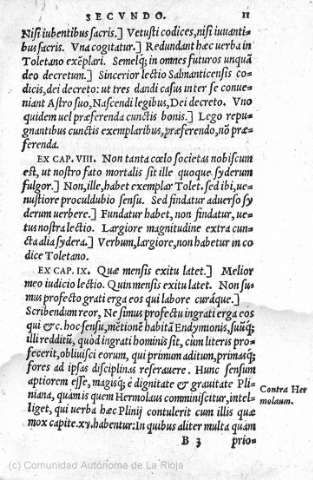 SECVNDO. 11
Nisi iubentibus sacris.] Vetusti codices, nisi iuuanti=
bus sacris. Vna cogitatur.] Redundant hæc uerba in
Toletano exẽplari. Semelq́; in omnes futuros unquã
deo decretum.] Sincerior lectio Sabnanticensis co=
dicis, dei decreto: ut tres dandi casus inter se conue=
niant Astro suo, Nascendi legibus, Dei decreto. Vno
quidem uel præferenda cunctis bonis.] Lego repu=
gnantibus cunctis exemplaribus, præferendo, nõ præ=
ferenda.
EX CAP. VIII. Non tanta cœlo societas nobiscum
est, ut nostro fato mortalis sit ille quoque syderum
fulgor.] Non, ille, habet exemplar Tolet. sed ibi, ue=
nustiore proculdubio sensu. Sed findatur aduerso sy
derum uerbere.] Fundatur habet, non findatur, ue=
tus nostra lectio. Largiore magnitudine extra cun=
cta alia sydera.] Verbum, largiore, non habetur in co
dice Toletano.
EX CAP. IX. Quæ mensis exitu latet.] Melior
meo iudicio lectio. Quin mensis exitu latet. Non su=
mus profecto grati erga eos qui labore curáque.]
Scribendum reor, Ne simus profectu ingrati erga eos
qui &c. hoc sensu, mẽtionẽ habitã Endymionis, suũq́;
illi redditũ, quod ingrati hominis sit, cum literis pro=
fecerit, obliuisci eorum, qui primum aditum, primasq́;
fores ad ipsas disciplinas reserauere. Hunc sensum
aptiorem esse, magisq́; è dignitate & grauitate Pli=
niana, quàm is quem Hermolaus comminiscitur, intel=
liget, qui uerba hæc Plinij contulerit cum illis quæ
mox capite. xij. habentur: In quibus aliter multa quàm
Contra Her
molaum.
B 3 prio=
(c) Comunidad Autónoma de La Rioja